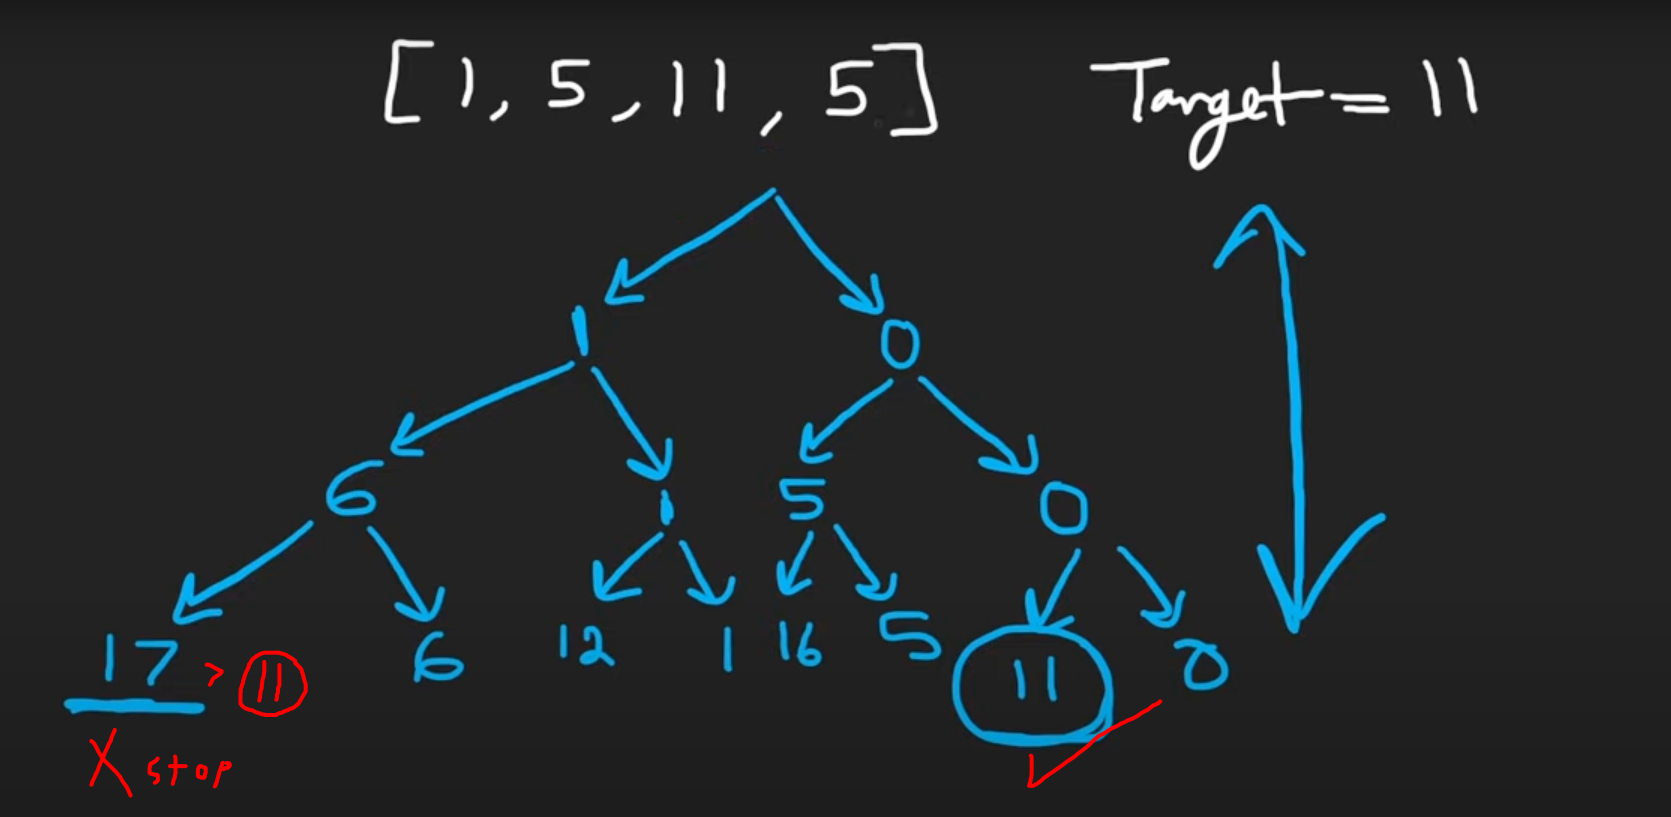 [1, 5, 11, 5] Target = 11
1 0
6 1 5 0
17 > 11 6 12 1 16 5 11 0
X stop